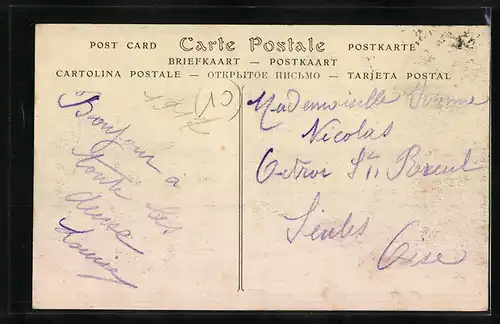 POST CARD Carte Postale POSTKARTE
BRIEFKAART — POSTKAART
CARTOLINA POSTALE — ОТКРЫТОЕ ПИСЬМО — TARJETA POSTAL
(10)
Bonjour à
toute les
Louise
Mademoiselle Yvonne
Nicolas
Octroi St
Senlis
Oise